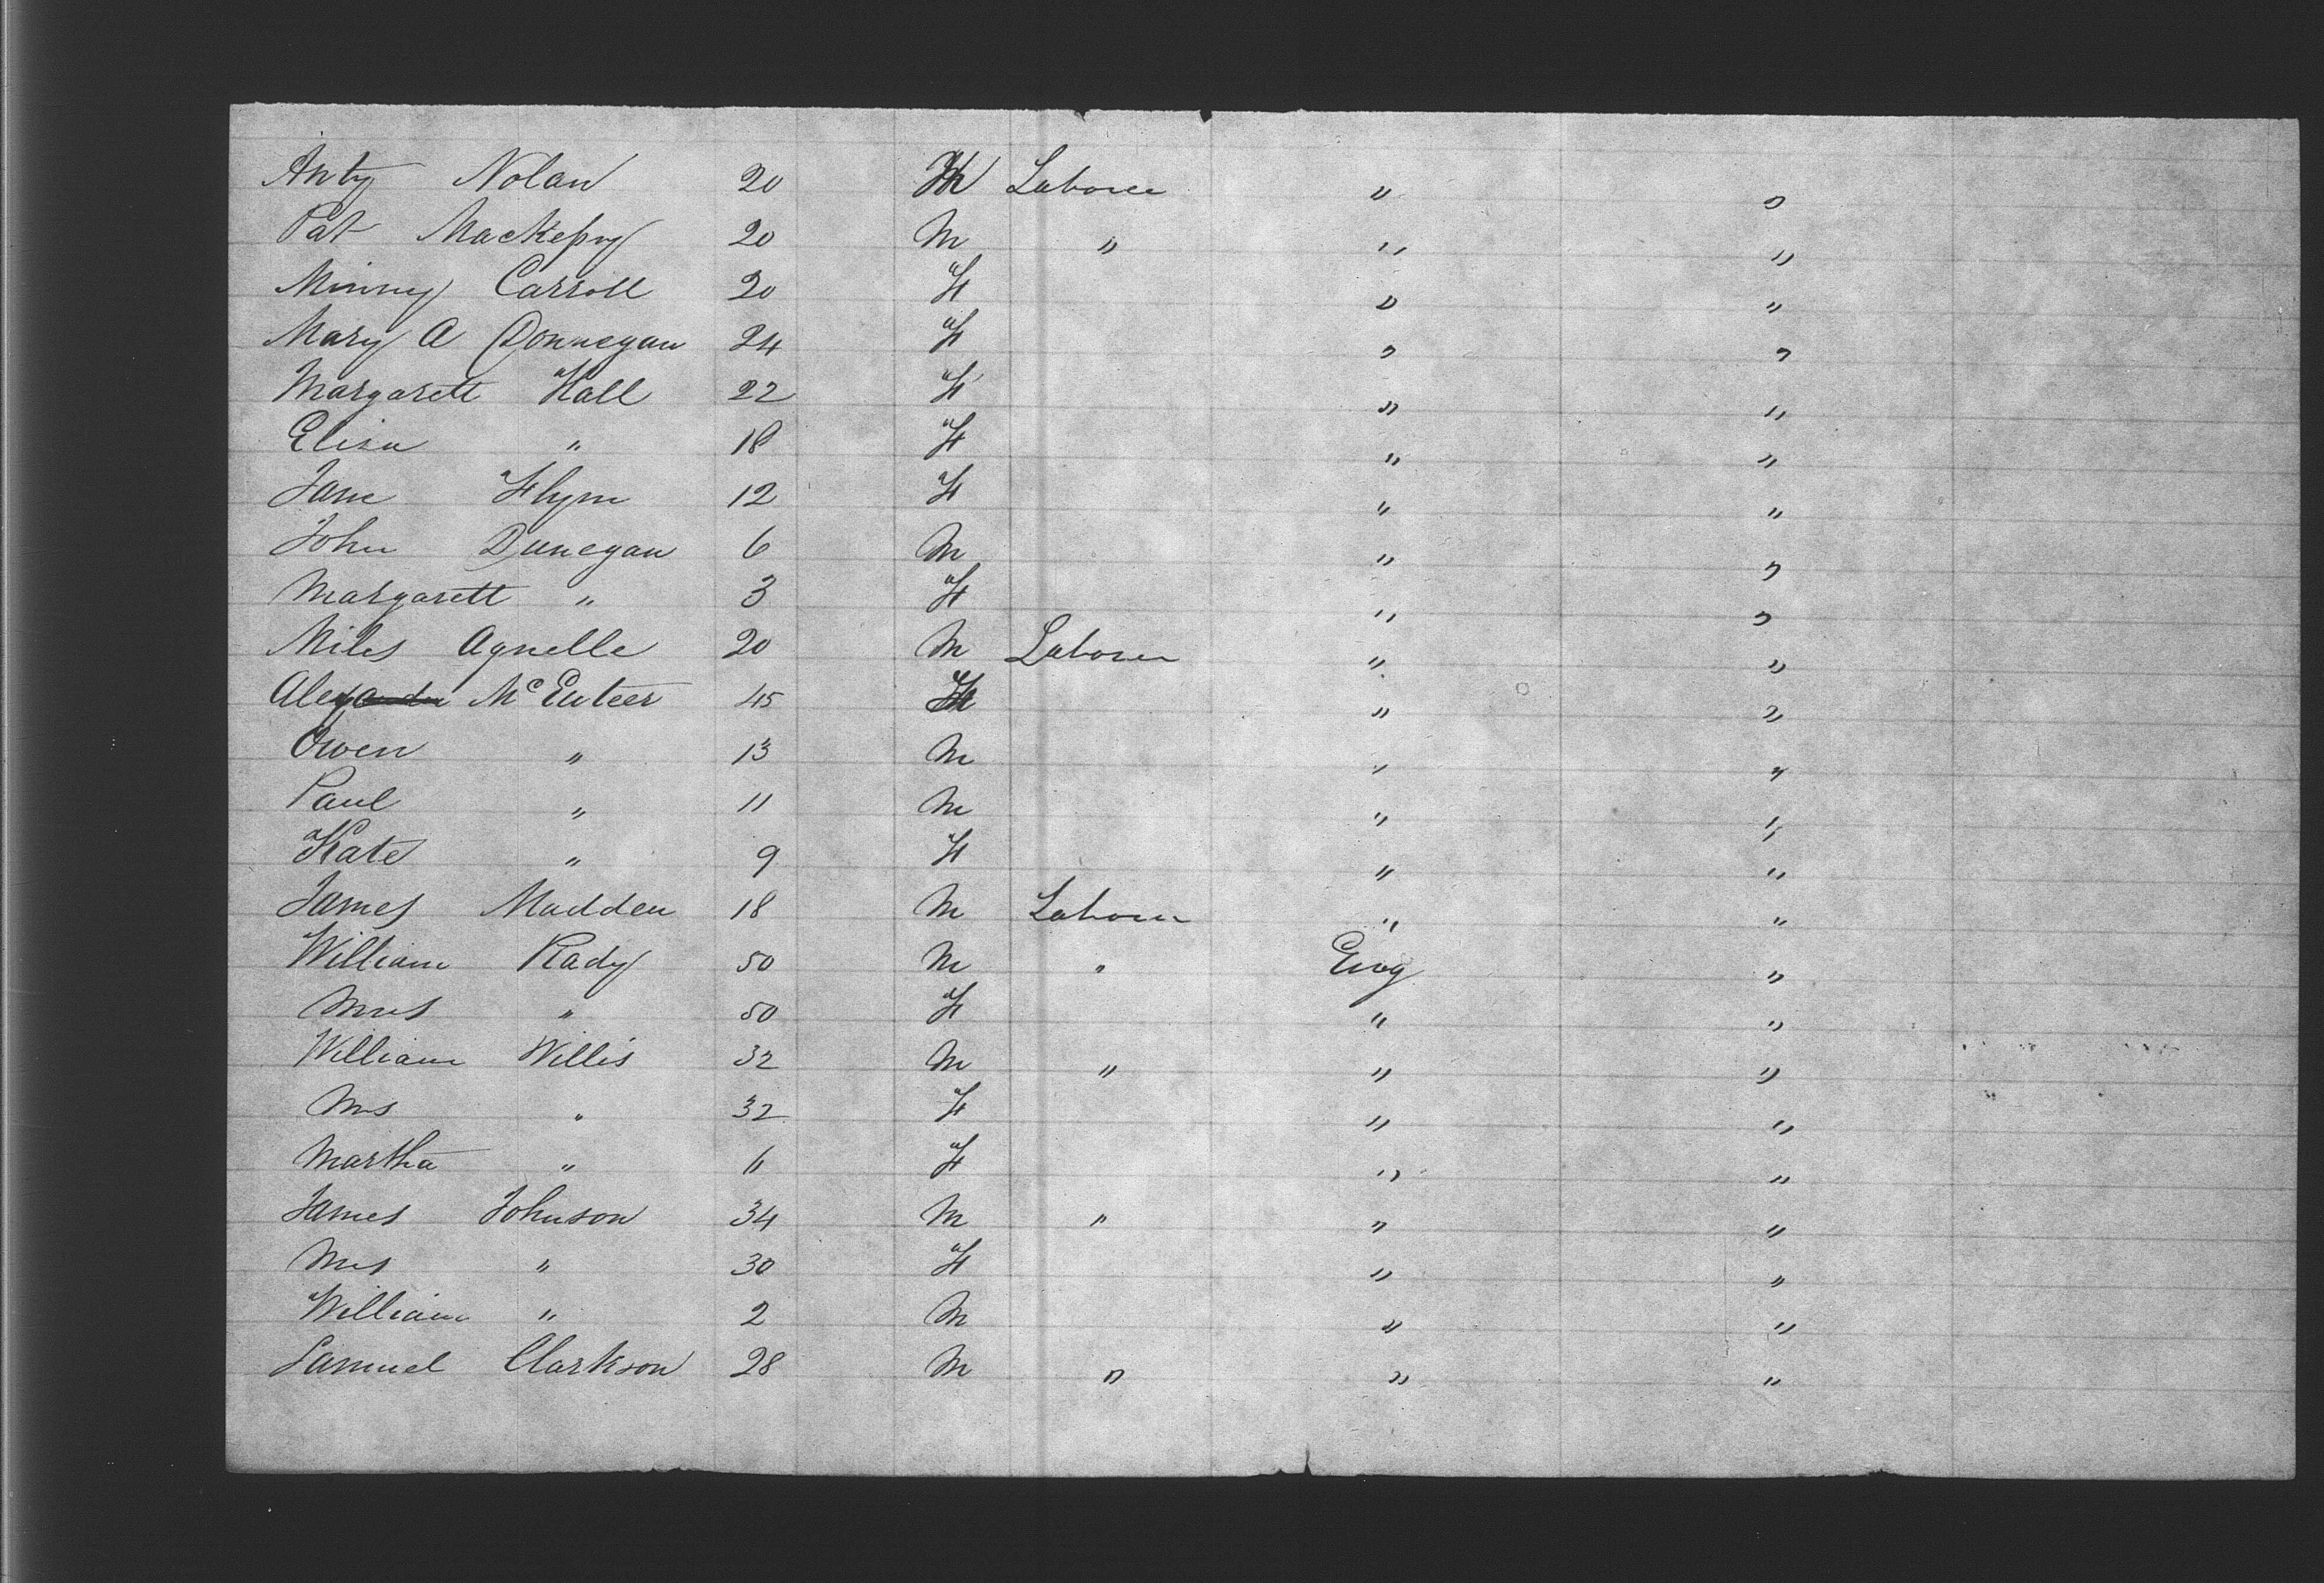 Anty Nolan 20 M Laborer " "
Pat 20 M " " "
Minny Carroll 20 F " "
Mary A Donnegan 24 F " "
Margarett Hall 22 F " "
Eliza " 18 F " "
Jane Flynn 12 F " "
John Dunegan 6 M " "
Margarett " 3 F " "
Miles Agnelle 20 M Laborer " "
Mc Enteer 45 " "
Owen " 13 M " "
Paul " 11 M " "
Kate " 9 F " "
James Madden 18 M Laborer " "
William Rady 50 M " Eng "
Mrs " 50 F " "
William Willis 32 M " " "
Mrs " 32 F " "
Martha " F " "
James Johnson 34 M " " "
Mrs " 30 F " "
William " 2 M " "
Samuel Clarkson 28 M " " "